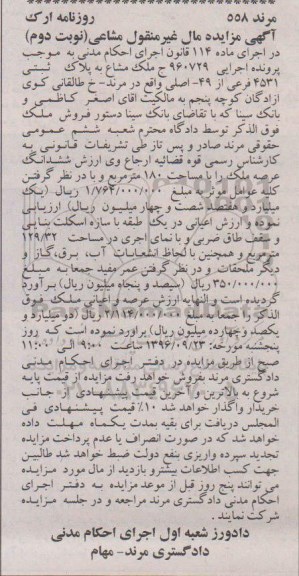 مرند ۵۵۸ روزنامه ارک
آگهی مزایده مال غیرمنقول مشاعی(نوبت دوم)
در اجرای ماده ۱۱۴ قانون اجرای احکام مدنی به موجب
پرونده اجرایی ۹۶۰۷۲۹ ج ملک مشاع به پلاک ثبتی
۴۵۳۱ فرعی از ۴۹- اصلی واقع در مرند- خ طالقانی کوی
آزادگان کوچه پنجم به مالکیت آقای اصغر کاظمی و
بانک سینا که با تقاضای بانک سینا دستور فروش ملک
فوق الذکر توسط دادگاه محترم شعبه ششم عمومی
حقوقی مرند صادر و پس از طی تشریفات قانونی به
کارشناس رسمی قوه قضائیه ارجاع وی ارزش ششدانگ
عرصه ملک را با مساحت ۱۸۰ مترمربع و با در نظر گرفتن
کلیه عوامل موثر به مبلغ ۱/۷۶۴/۰۰۰/۰۰۰ ریال (یک
میلیارد و هفتصد و شصت و چهار میلیون ریال) ارزیابی
نموده و ارزش اعیانی در یک طبقه با سازه اسکلت بنایی
و سقف طاق ضربی و با نمای آجری در مساحت ۱۲۹/۳۲
مترمربع و همچنین با لحاظ انشعابات آب، برق،گاز و
دیگر ملحقات و در نظر گرفتن عمر مفید جمعا به مبلغ
۳۵۰/۰۰۰/۰۰۰ ریال (سیصد و پنجاه میلیون ریال) برآورد
گردیده است و النهایه ارزش عرصه و اعیانی ملک فوق
الذکر را جمعا به مبلغ ۲/۱۱۴/۰۰۰/۰۰۰ ریال (دو میلیارد و
یکصد و چهارده میلیون ریال) براورد نموده است که روز
پنجشنبه مورخه: ۱۳۹۶/۰۹/۲۳ ساعت ۹:۰۰ الی ۱۱:۰۰
صبح از طریق مزایده در دفتر اجرای احکام مدنی
دادگستری مرند بفروش خواهد رفت مزایده از قیمت پایه
شروع به بالاترین و آخرین قیمت پیشنهادی از جانب
خریدار واگذار خواهد شد ۱۰٪ قیمت پیشنهادی فی
المجلس دریافت برای بقیه بمدت یکماه مهلت داده
خواهد شد که در صورت انصراف یا عدم پرداخت مزایده
تجدید سپرده واریزی بنفع دولت ضبط خواهد شد طالبین
جهت کسب اطلاعات بیشتر و بازدید از مال مورد مزایده
می توانند پنج روز قبل از موعد مزایده به دفتر اجرای
احکام مدنی دادگستری مرند مراجعه و در جلسه مزایده
شرکت نمایند .
دادورز شعبه اول اجرای احکام مدنی
دادگستری مرند- مهام